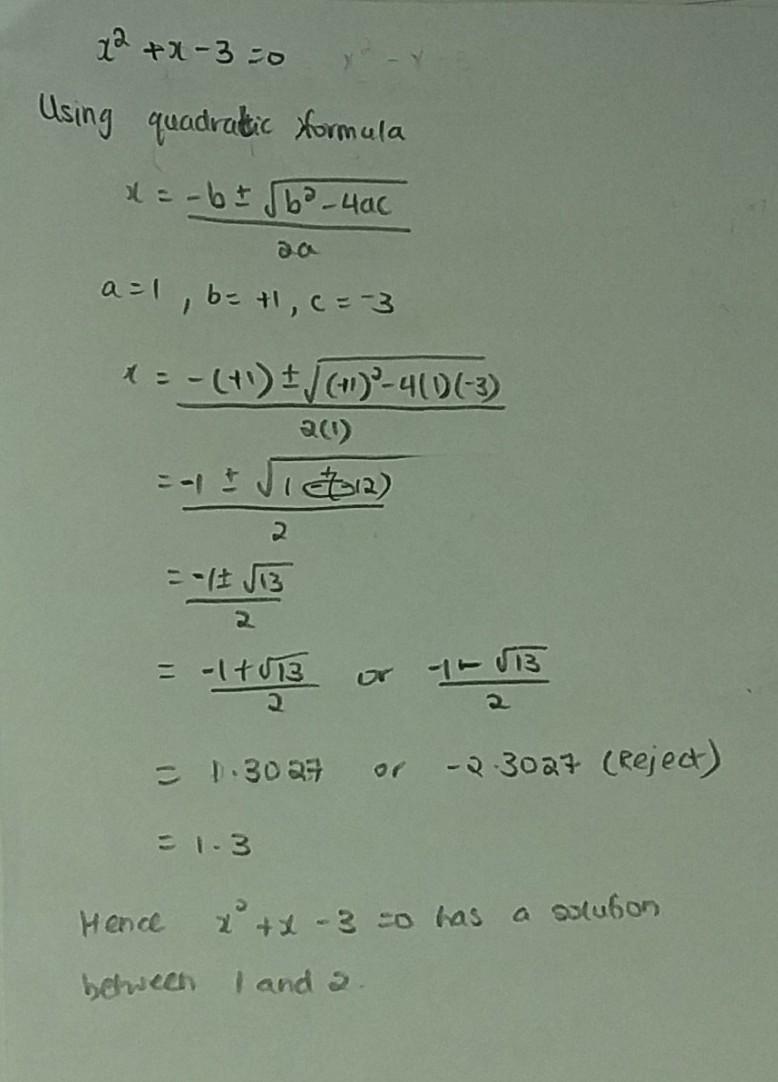 x² + x - 3 = 0
Using quadratic formula
x = -b ± √b² - 4ac
2a
a = 1, b = +1, c = -3
x = -(+1) ± √(+1)² - 4(1)(-3)
2(1)
= -1 ± √1 + 12)
2
= -1 ± √13
2
= -1 + √13 or -1 - √13
2 2
= 1.3027 or -2.3027 (Reject)
= 1.3
Hence x² + x - 3 = 0 has a solution
between 1 and 2.